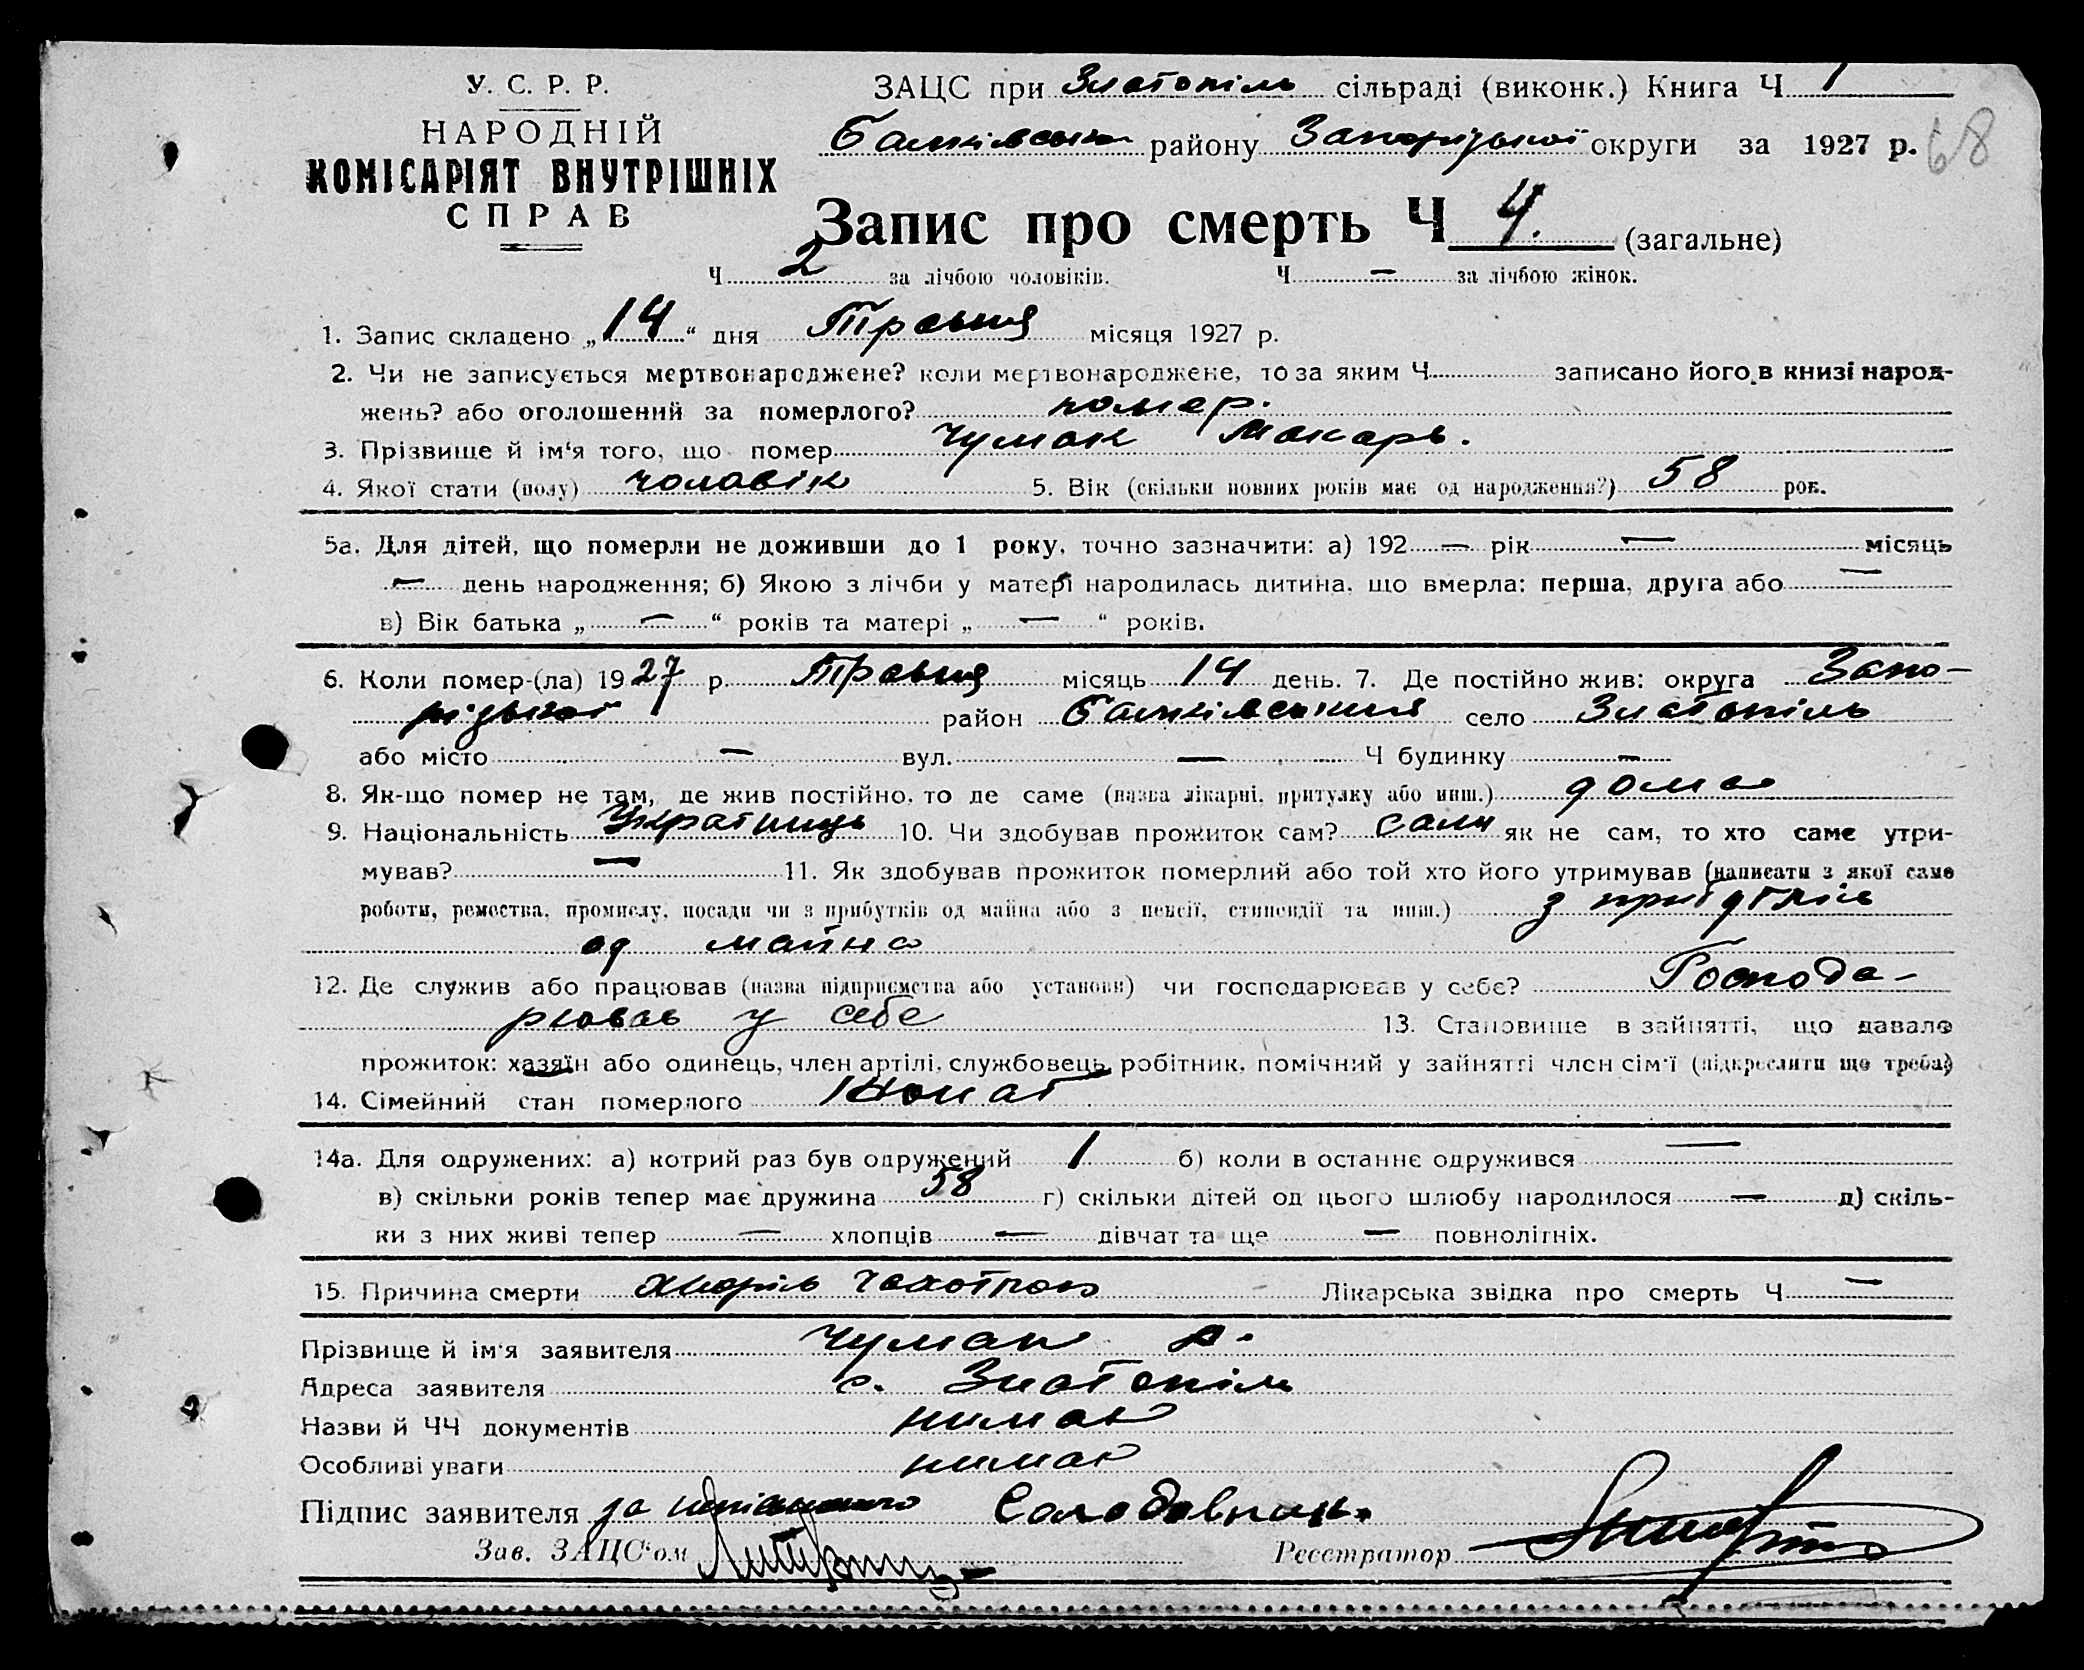 У. С. Р. Р.
НАРОДНІЙ
КОМІСАРІЯТ ВНУТРІШНІХ
СПРАВ
ЗАЦС при Златопіль сільраді (виконк.) Книга Ч 1
району Запорізької округи за 1927 р. 68
Запис про смерть Ч 4. (загальне)
Ч 2 за лічбою чоловіків. Ч — за лічбою жінок.
1. Запис складено „ 14 “ дня Травня місяця 1927 р.
2. Чи не записується мертвонароджене? коли мертвонароджене, то за яким Ч записано його в книзі народ-
жень? або оголошений за померлого? помер.
3. Прізвище й ім‘я того, що помер Чумак Макарь.
4. Якої стати (полу) чоловік 5. Вік (скільки повних років має од народження?) 58 рок.
5а. Для дітей, що померли не доживши до 1 року, точно зазначити: а) 192 — рік — місяць
— день народження; б) Якою з лічби у матері народилась дитина, що вмерла: перша, друга або —
в) Вік батька „ — “ років та матері „ — “ років.
6. Коли помер-(ла) 1927 р. Травня місяць 14 день. 7. Де постійно жив: округа Запо-
різької район село Златопіль
або місто — вул. — Ч будинку —
8. Як-що помер не там, де жив постійно, то де саме (назва лікарні, притулку або инш.) дома
9. Національність Українець 10. Чи здобував прожиток сам? сам як не сам, то хто саме утри-
мував? — 11. Як здобував прожиток померлий або той хто його утримував (написати з якої саме
роботи, ремества, промислу, посади чи з прибутків од майна або з пенсії, стипендії та инш.) з прибутків
од майна
12. Де служив або працював (назва підприємства або установи) чи господарював у себе? Господа-
рював у себе 13. Становище в зайнятті, що давало
прожиток: хазяїн або одинець, член артілі, службовець, робітник, помічний у зайнятті член сім‘ї (підкреслити що треба)
14. Сімейний стан померлого Жонат
14а. Для одружених: а) котрий раз був одружений 1 б) коли в останнє одружився —
в) скільки років тепер має дружина 58 г) скільки дітей од цього шлюбу народилося — д) скіль-
ки з них живі тепер — хлопців — дівчат та ще — повнолітніх.
15. Причина смерти хворів чахоткою Лікарська звідка про смерть Ч —
Прізвище й ім‘я заявителя Чумак А.
Адреса заявителя с. Златопіль
Назви й ЧЧ документів нимає
Особливі уваги нимає
Підпис заявителя за
Зав. ЗАЦС‘ом
Реєстратор